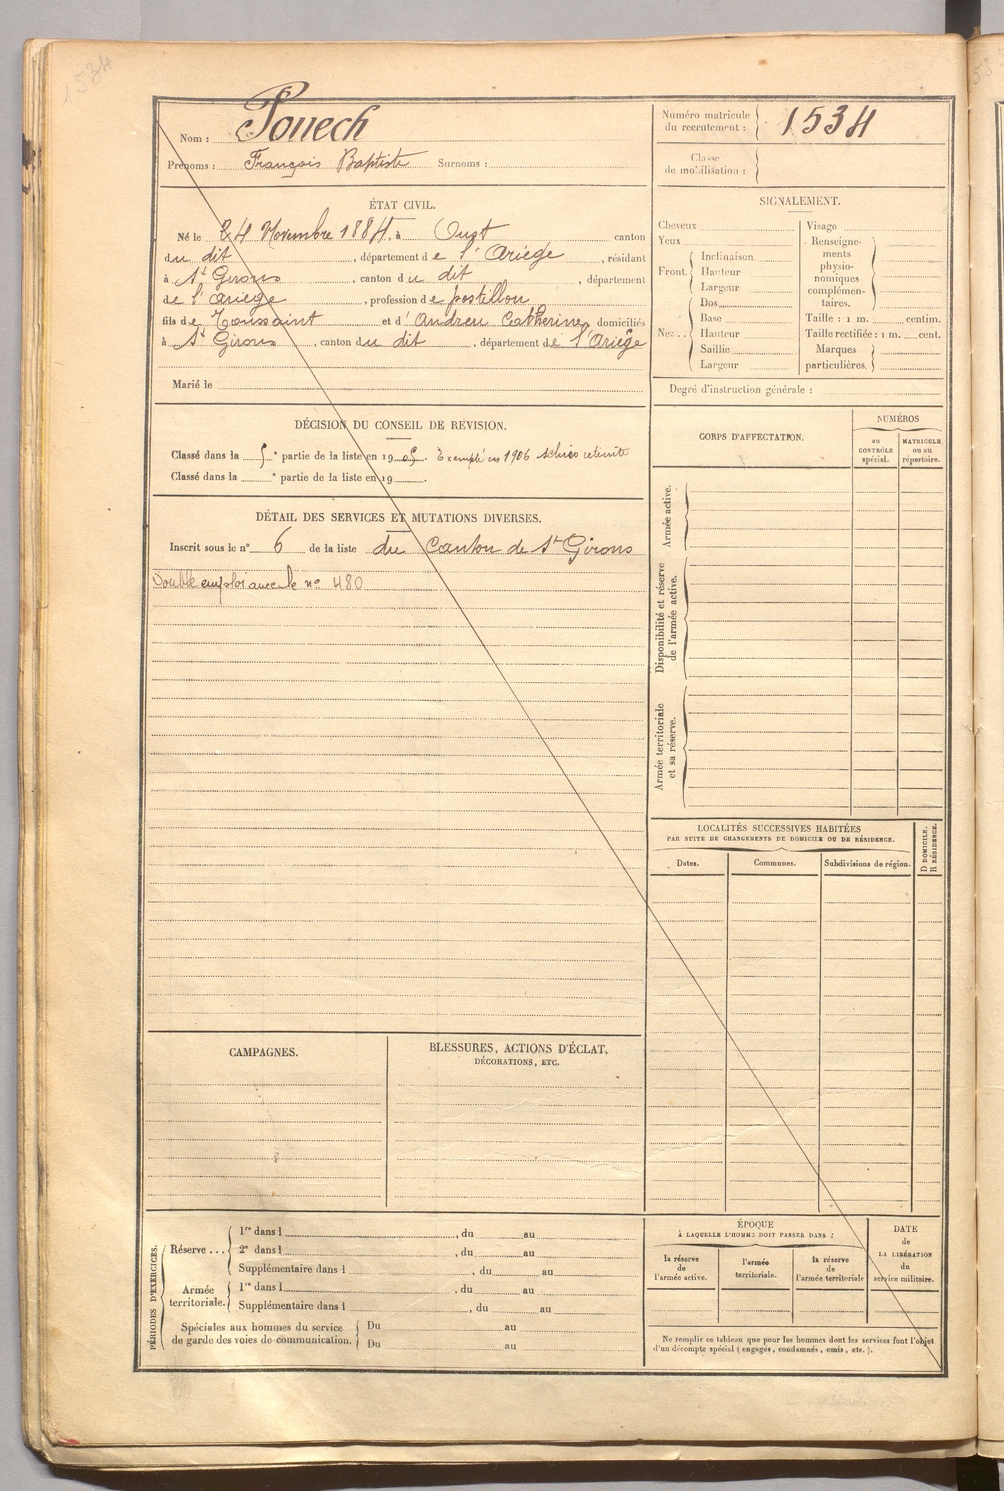 1534
Nom : Pouech
Prénoms : François Baptiste Surnoms :
Numéro matricule du recrutement : 1534
Classe de mobilisation :
ÉTAT CIVIL.
Né le 24 Novembre 1884, à Oust canton
du dit, département de l'Ariège, résidant
à St Girons, canton du dit, département
de l'ariège, profession de postillon
fils de Toussaint et d'Andreu Catherine, domiciliés
à St Girons, canton du dit, département de l'Ariège
Marié le
DÉCISION DU CONSEIL DE REVISION.
Classé dans la 5e partie de la liste en 1905. Exempté en 1906 rétinite
Classé dans la e partie de la liste en 19 .
DÉTAIL DES SERVICES ET MUTATIONS DIVERSES.
Inscrit sous le n° 6 de la liste du Canton de St Girons
Double emploi avec le n° 480
CAMPAGNES.
BLESSURES, ACTIONS D'ÉCLAT,
DÉCORATIONS, ETC.
PÉRIODES D'EXERCICES.
Réserve...
1re dans l , du au
2e dans l , du au
Supplémentaire dans l , du au
Armée territoriale.
1re dans l , du au
Supplémentaire dans l , du au
Spéciales aux hommes du service
de garde des voies de communication.
Du au
Du au
SIGNALEMENT.
Cheveux
Yeux
Front.
Inclinaison
Hauteur
Largeur
Nez..
Dos
Base
Hauteur
Saillie
Largeur
Visage
Renseigne-
ments
physio-
nomiques
complémen-
taires.
Taille : 1 m. centim.
Taille rectifiée : 1 m. cent.
Marques
particulières.
Degré d'instruction générale :
CORPS D'AFFECTATION.
NUMÉROS
au CONTRÔLE spécial.
MATRICULE ou au répertoire.
Armée active.
Disponibilité et réserve
de l'armée active.
Armée territoriale
et sa réserve.
LOCALITÉS SUCCESSIVES HABITÉES
PAR SUITE DE CHANGEMENTS DE DOMICILE OU DE RÉSIDENCE.
Dates.
Communes.
Subdivisions de région.
D DOMICILE.
R RÉSIDENCE.
ÉPOQUE
À LAQUELLE L'HOMME DOIT PASSER DANS :
la réserve de l'armée active.
l'armée territoriale.
la réserve de l'armée territoriale
DATE
de
LA LIBÉRATION
du
service militaire.
Ne remplir ce tableau que pour les hommes dont les services font l'objet
d'un décompte spécial (engagés, condamnés, omis, etc.).